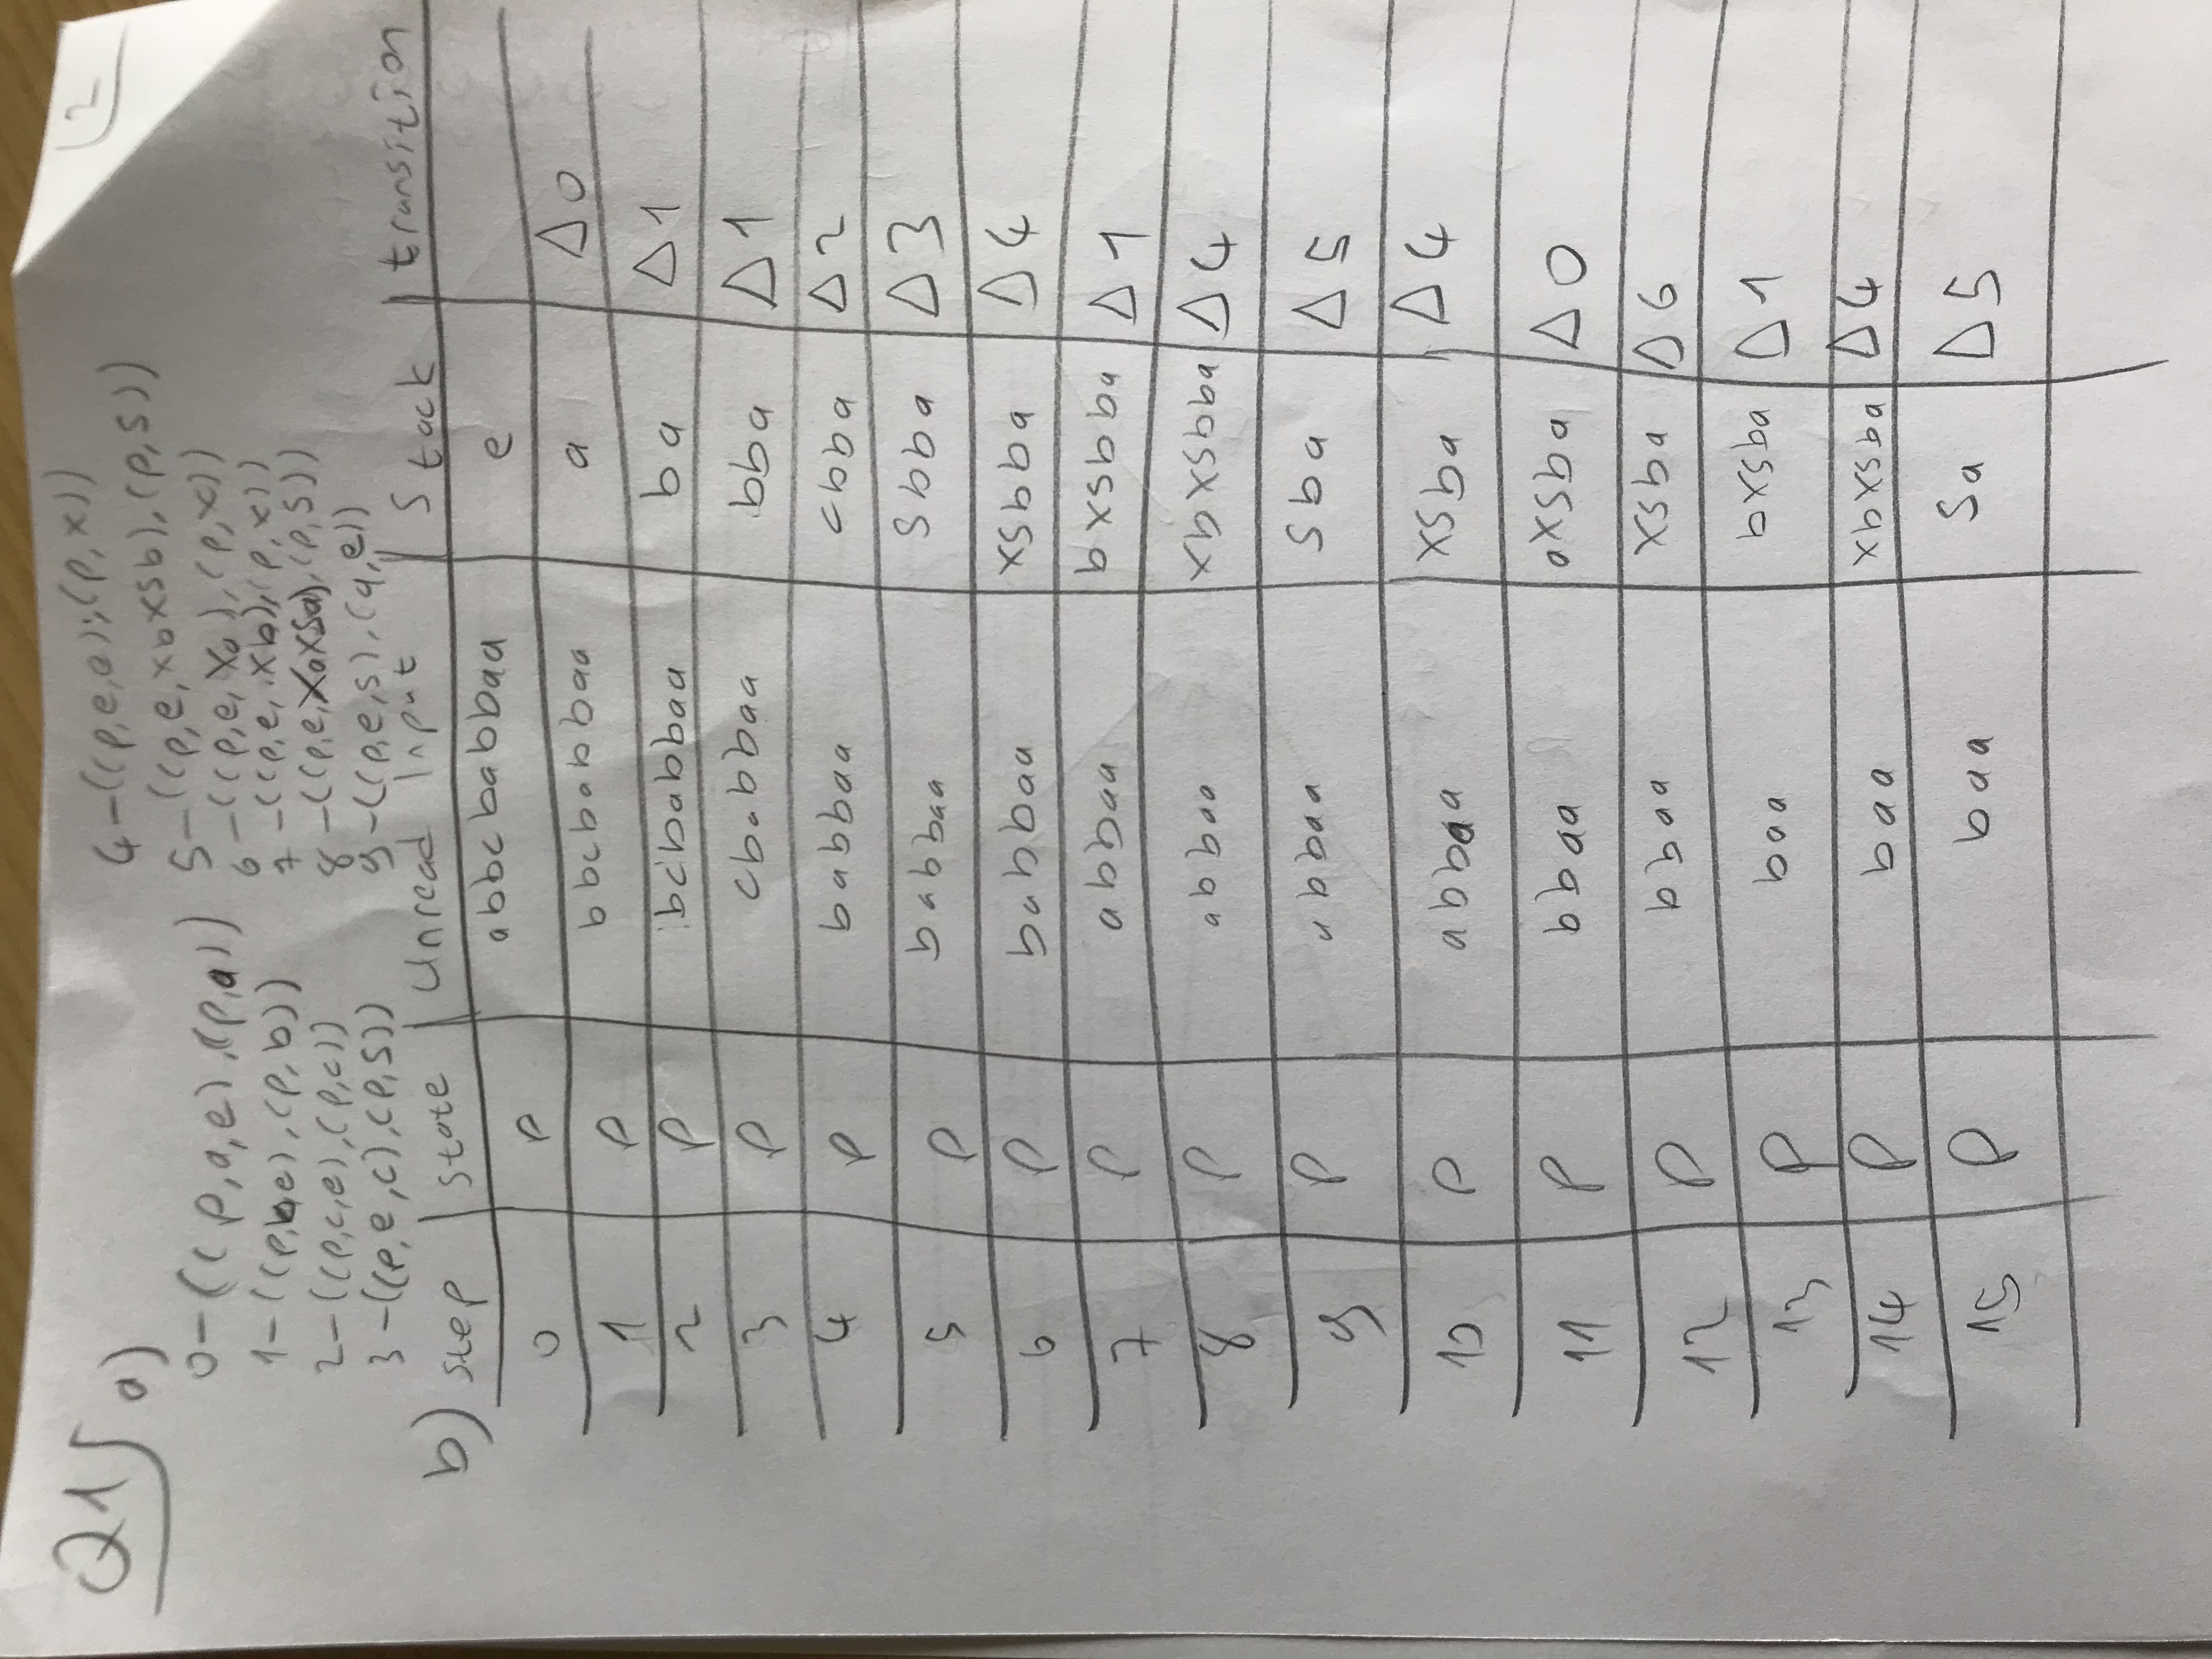 Q1) a)
2
0-((p,a,e),(p,a))
1-((p,b,e),(p,b))
2-((p,c,e),(p,c))
3-((p,e,c),(p,S))
4-((p,e,e),(p,x))
5-((p,e,xbxSb),(p,S))
6-((p,e,xa),(p,x))
7-((p,e,xb),(p,x))
8-((p,e,xaxSa),(p,S))
9-((p,e,S),(q,e))
b) step state Unread Input Stack transition
0 p abbcbabbaa e
1 p bbcbabbaa a Δ0
2 p bcbabbaa ba Δ1
3 p cbabbaa bba Δ1
4 p babbaa cbba Δ2
5 p babbaa Sbba Δ3
6 p babbaa xSbba Δ4
7 p abbaa bxSbba Δ1
8 p abbaa xbxSbba Δ4
9 p abbaa Sba Δ5
10 p abbaa xSba Δ4
11 p bbaa axSba Δ0
12 p bbaa xSba Δ6
13 p baa bxSba Δ1
14 p baa xbxSba Δ4
15 p baa Sa Δ5